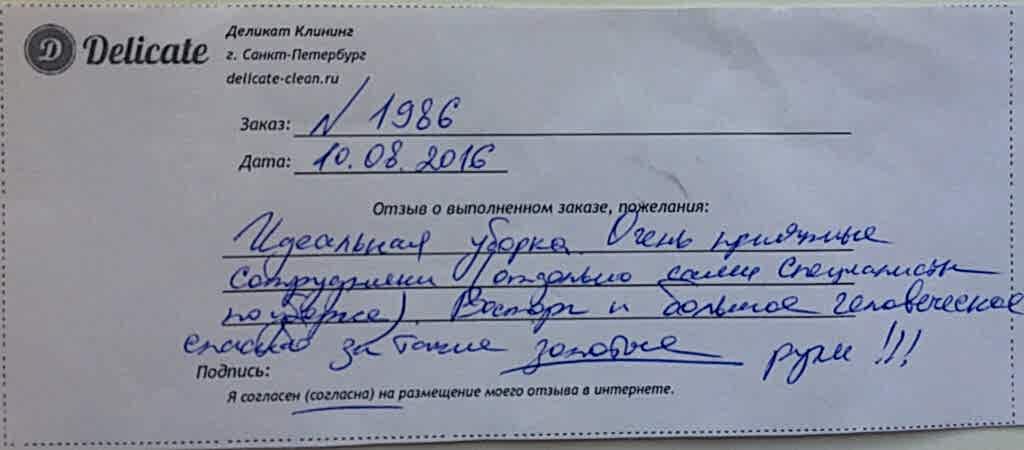 Delicate
Деликат Клининг
г. Санкт-Петербург
delicate-clean.ru
Заказ: N 1986
Дата: 10.08.2016
Отзыв о выполненном заказе, пожелания:
Идеальная уборка. Очень приятные
сотрудники (отдельно сами специалисты
по уборке). Восторг и большое человеческое
спасибо за такие золотые руки!!!
Подпись:
Я согласен (согласна) на размещение моего отзыва в интернете.